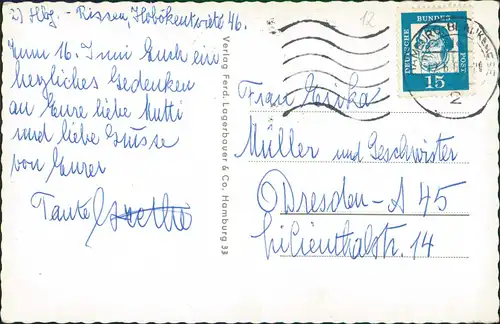 2) Hbg.- Rissen, Hobökentwiete 46.
Zum 16. Juni Euch ein
herzliches Gedenken
an Eure liebe Mutti
und liebe Grüsse
von Eurer
Tante Grethe
Verlag Ferd. Lagerbauer & Co. Hamburg 33
12
DEUTSCHE BUNDESPOST
15
2
Frau Erika
Müller und Geschwister
Dresden-A 45
Lilienthalstr. 14